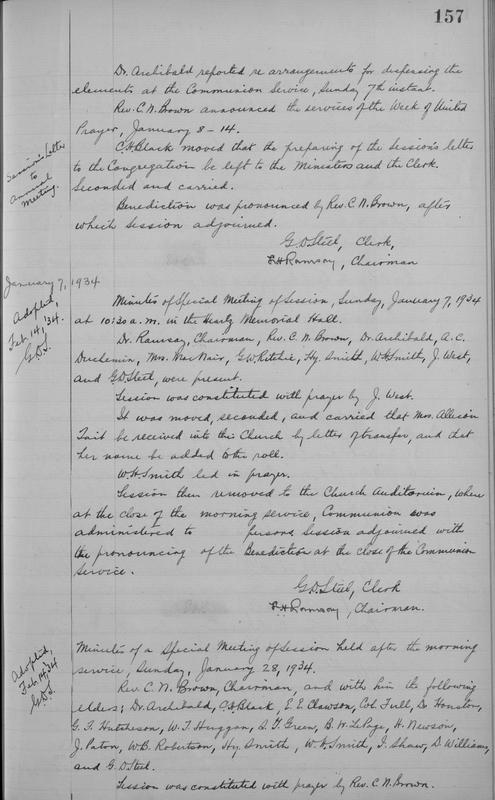 157
Dr. Archibald reported re arrangements for dispensing the
elements at the Communion Service, Sunday 7th instant.
Rev. C. N. Brown announced the services of the Week of United
Prayer, January 8 - 14.
Session's Letter
to
Annual
Meeting.
C.H. Black moved that the preparing of the Session's letter
to the Congregation be left to the Ministers and the Clerk.
Seconded and carried.
Benediction was pronounced by Rev. C. N. Brown, after
which Session adjourned.
G.D. Steel, Clerk,
Ramsay, Chairman
January 7, 1934
Adopted,
Feb. 14, '34.
G.D.S.
Minutes of Special Meeting of Session, Sunday, January 7, 1934
at 10:30 a.m. in the Memorial Hall.
Dr. Ramsay, Chairman, Rev. C. N. Brown, Dr. Archibald, A. C.
Duchemin, Mrs. MacNair, G.W. Ritchie, Hy. Smith, W.H. Smith, J. West,
and G.D. Steel, were present.
Session was constituted with prayer by J. West.
It was moved, seconded, and carried that Mrs. Allison
Tait be received into this Church by letter of transfer, and that
her name be added to the roll.
W.H. Smith led in prayer.
Session then removed to the Church Auditorium, where
at the close of the morning service, Communion was
administered to persons. Session adjourned with
the pronouncing of the Benediction at the close of the Communion
Service.
G.D. Steel, Clerk
Ramsay, Chairman.
Adopted,
Feb. 14, '34
G.D.S.
Minutes of a Special Meeting of Session held after the morning
service, Sunday, January 28, 1934.
Rev. C. N. Brown, Chairman, and with him the following
elders; Dr. Archibald, C.H. Black, E. E. Clawson, Col. Full, Dr. Houston,
G. F. Hutcheson, W. T. Huggan, Green, B. W. LePage, H. Newson,
J. Paton, W. B. Robertson, Hy. Smith, W. H. Smith, Shaw, D. Williams,
and G. D. Steel.
Session was constituted with prayer by Rev. C. N. Brown.